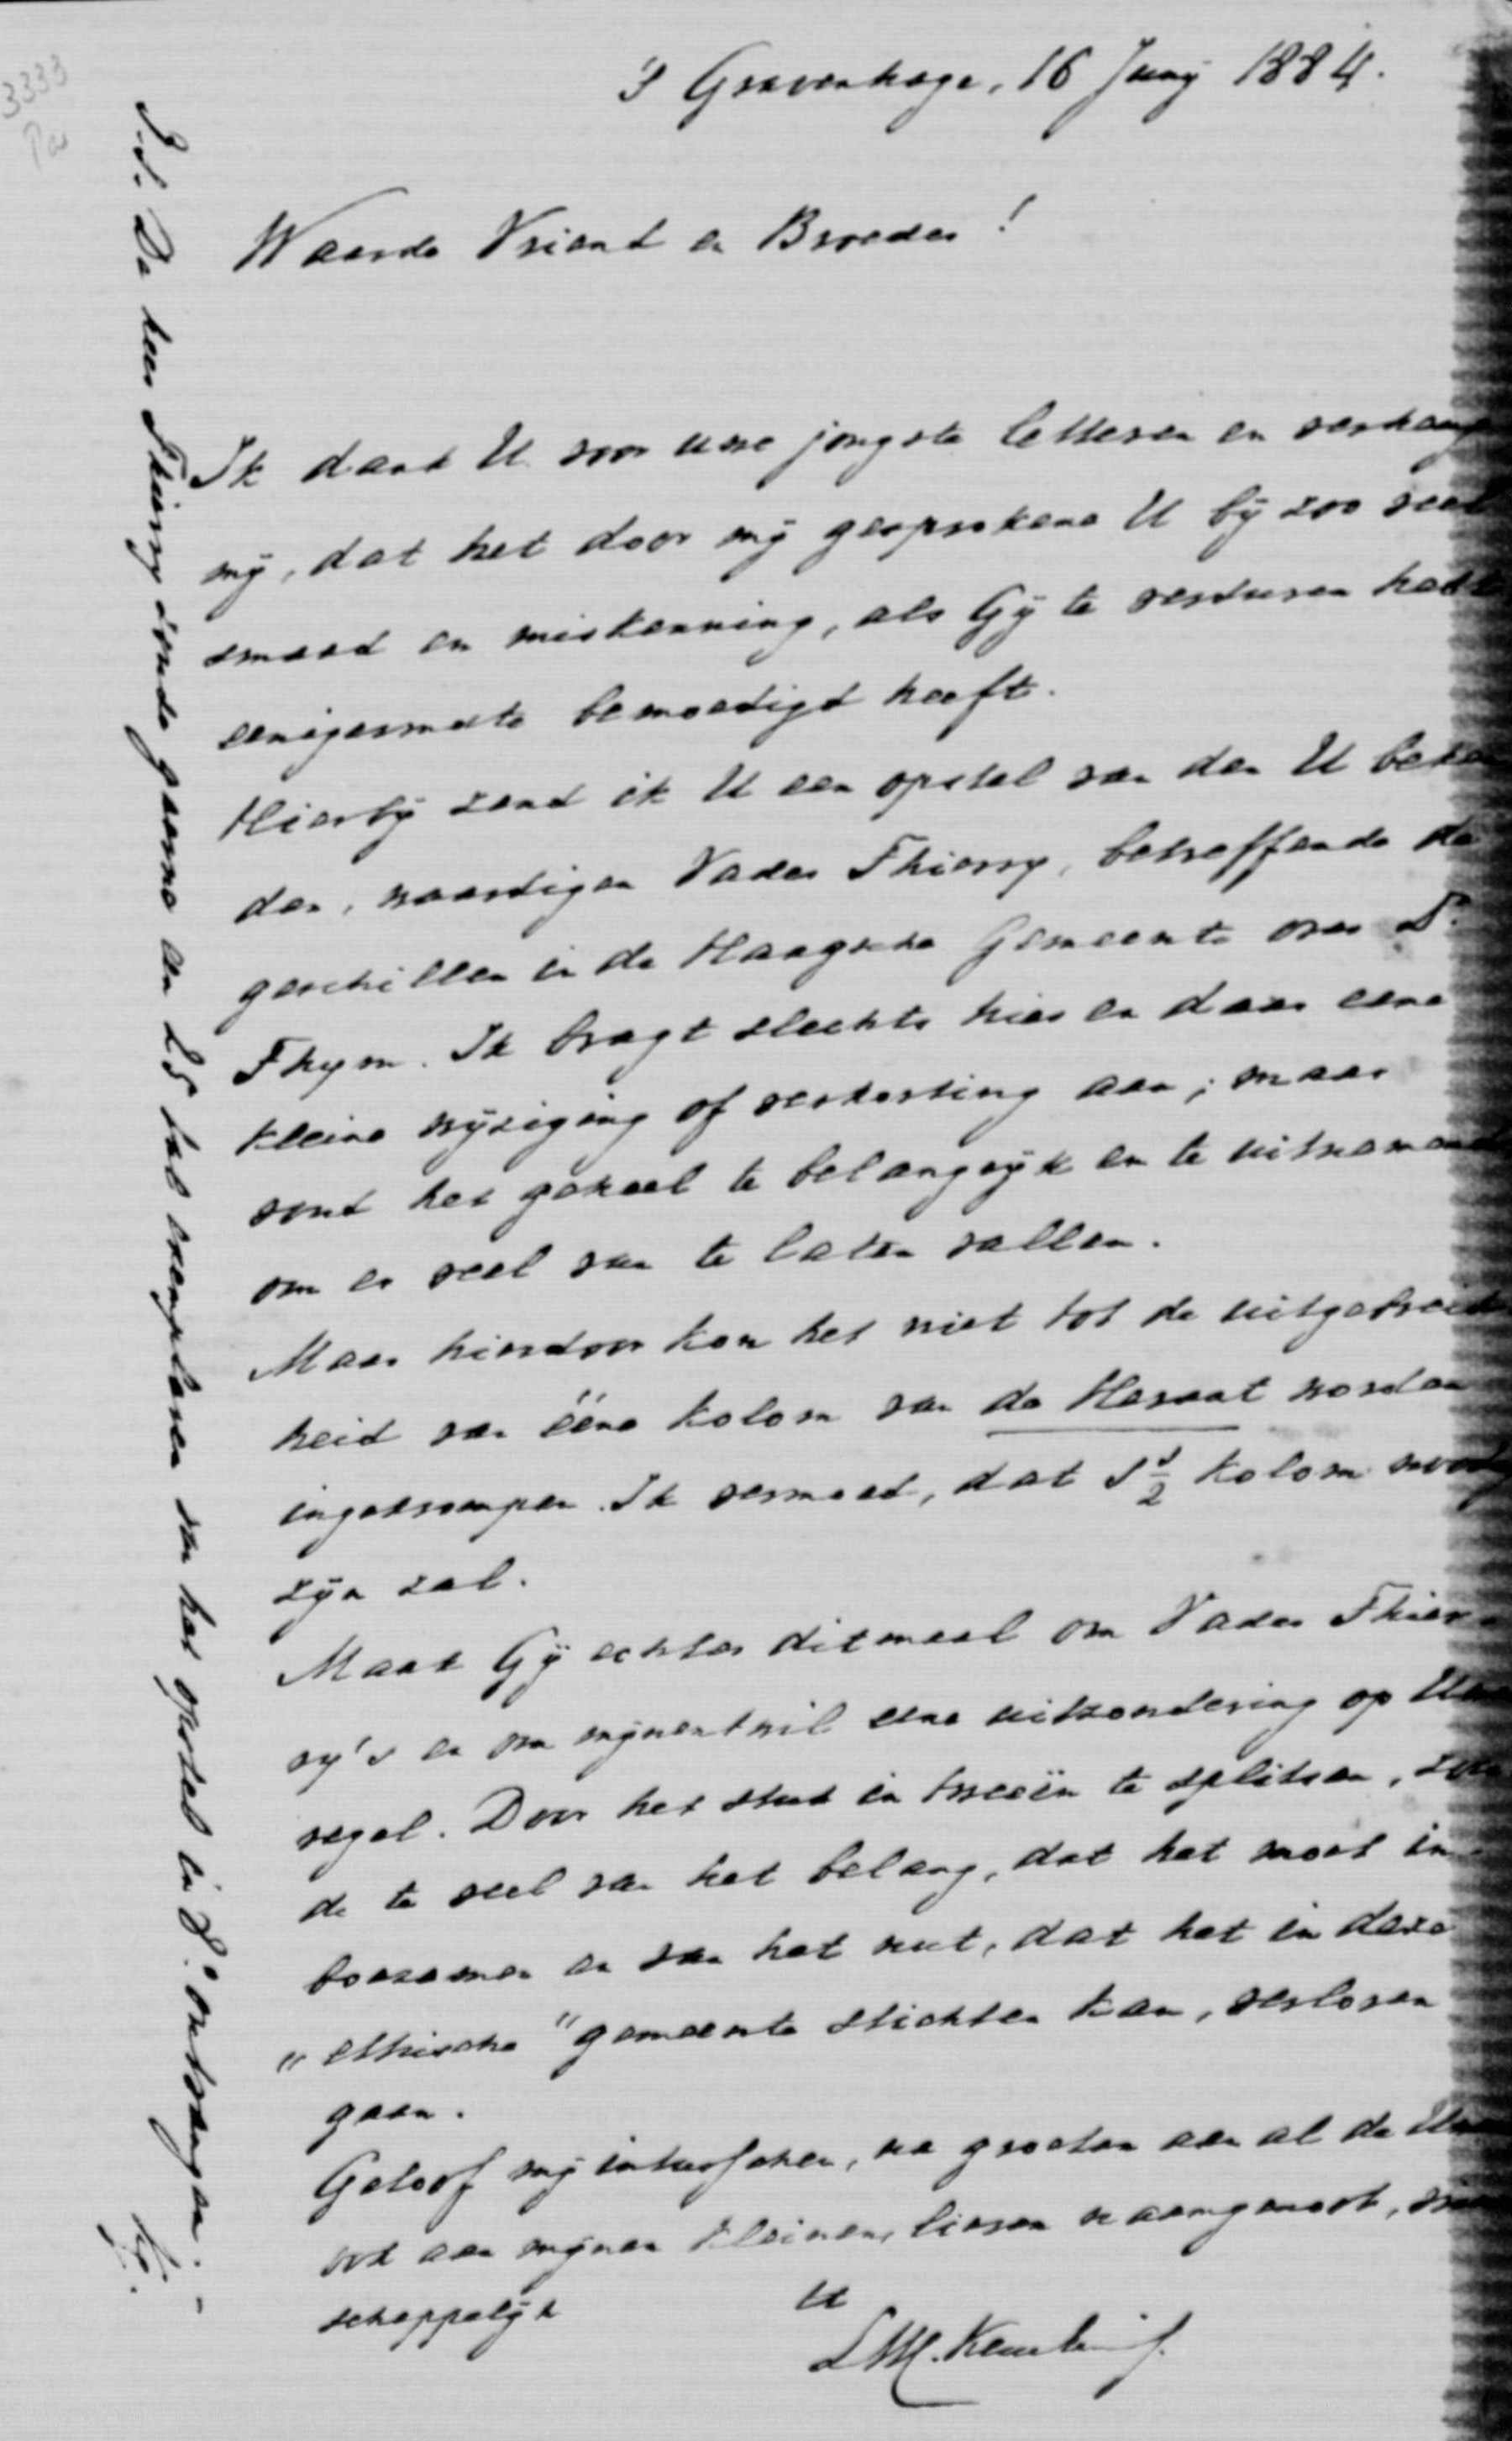 3333
's Gravenhage, 16 Juny 1884.
Waarde Vriend en Broeder!
Ik dank U voor uwe jongste letteren en verheug
mÿ, dat het door mÿ gesprokene U bÿ zoo veel
smaad en miskenning, als Gÿ te verduren hadt
eenigermate bemoedigd heeft.
Hierbÿ zend ik U een opstel van den U beken
den, waardigen Vader Thierry, betreffende de
geschillen in de Haagsche Gemeente over Ds.
Thym. Ik bragt slechts hier en daar eene
kleine wÿziging of verkorting aan; maar
vond het geheel te belangrÿk en te uitnemend
om er veel van te laten vallen.
Maar hierdoor kon het niet tot de uitgebreid
heid van ééne kolom van de Heraut worden
ingekrompen. Ik vermoed, dat 1 1/2 kolom noodig
zÿn zal.
Maak Gÿ echter ditmaal om Vader Thier
ry's en om mÿnentwil eene uitzondering op Uw
regel. Door het stuk in tweeën te splitsen, zou
de te veel van het belang, dat het moet in
boezemen en van het nut, dat het in deze
"ethische" gemeente stichten kan, verloren
gaan.
Geloof mÿ intusschen, na groeten aan al de Uwen
ook aan mÿnen kleinen, lieven naamgenoot, vriend
schappelÿk
U
LHK.
P.S. De heer Thierry zoude gaarne een 25 tal exemplaren van het opstel in 8.o ontvangen. -